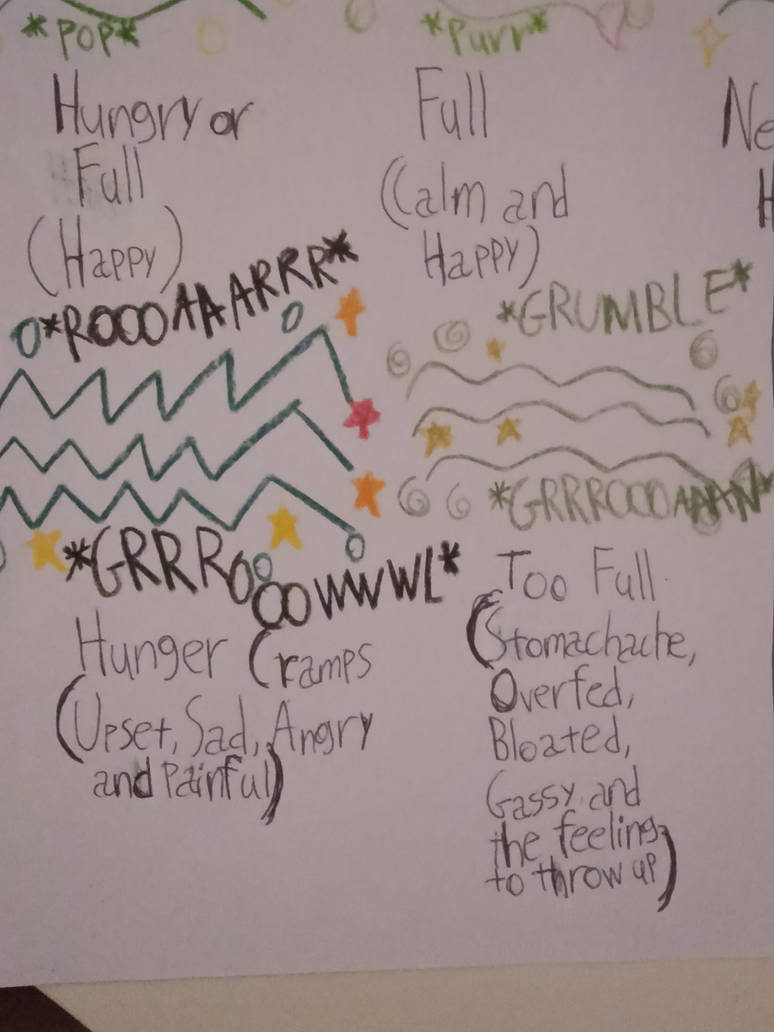 *POP*
Hungry or
Full
(Happy)
*Purr*
Full
(Calm and
Happy)
Ne
H
*ROOOAAAARRR*
*GRRROOOOWWWL*
Hunger Cramps
(Upset, Sad, Angry
and Painful)
*GRUMBLE*
*GRRROOOAAAN*
Too Full
(Stomachache,
Overfed,
Bloated,
Gassy and
the feeling
to throw up)